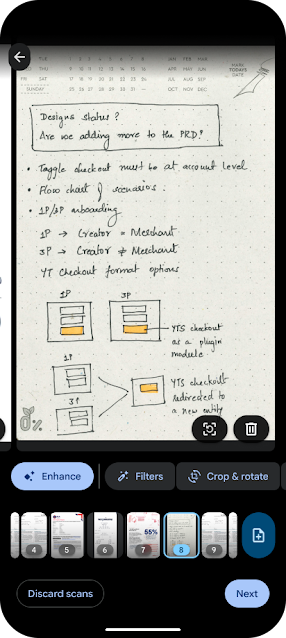 TUE WED THU FRI SAT SUNDAY
JAN FEB MAR
APR MAY JUN
JUL AUG SEP
OCT NOV DEC
MARK TODAY'S DATE
Designs status?
Are we adding more to the PRD?
• Toggle checkout must be at account level
• Flow chart of scenarios.
• 1P/3P onboarding
1P → Creator = Merchant
3P → Creator ≠ Merchant
YT Checkout format options
1P 3P
YTS checkout
as a plugin
module
1P
3P
YTS checkout
redirected to
a new entity
Enhance
Filters
Crop & rotate
4
5
6
7
55%
8
9
Discard scans
Next